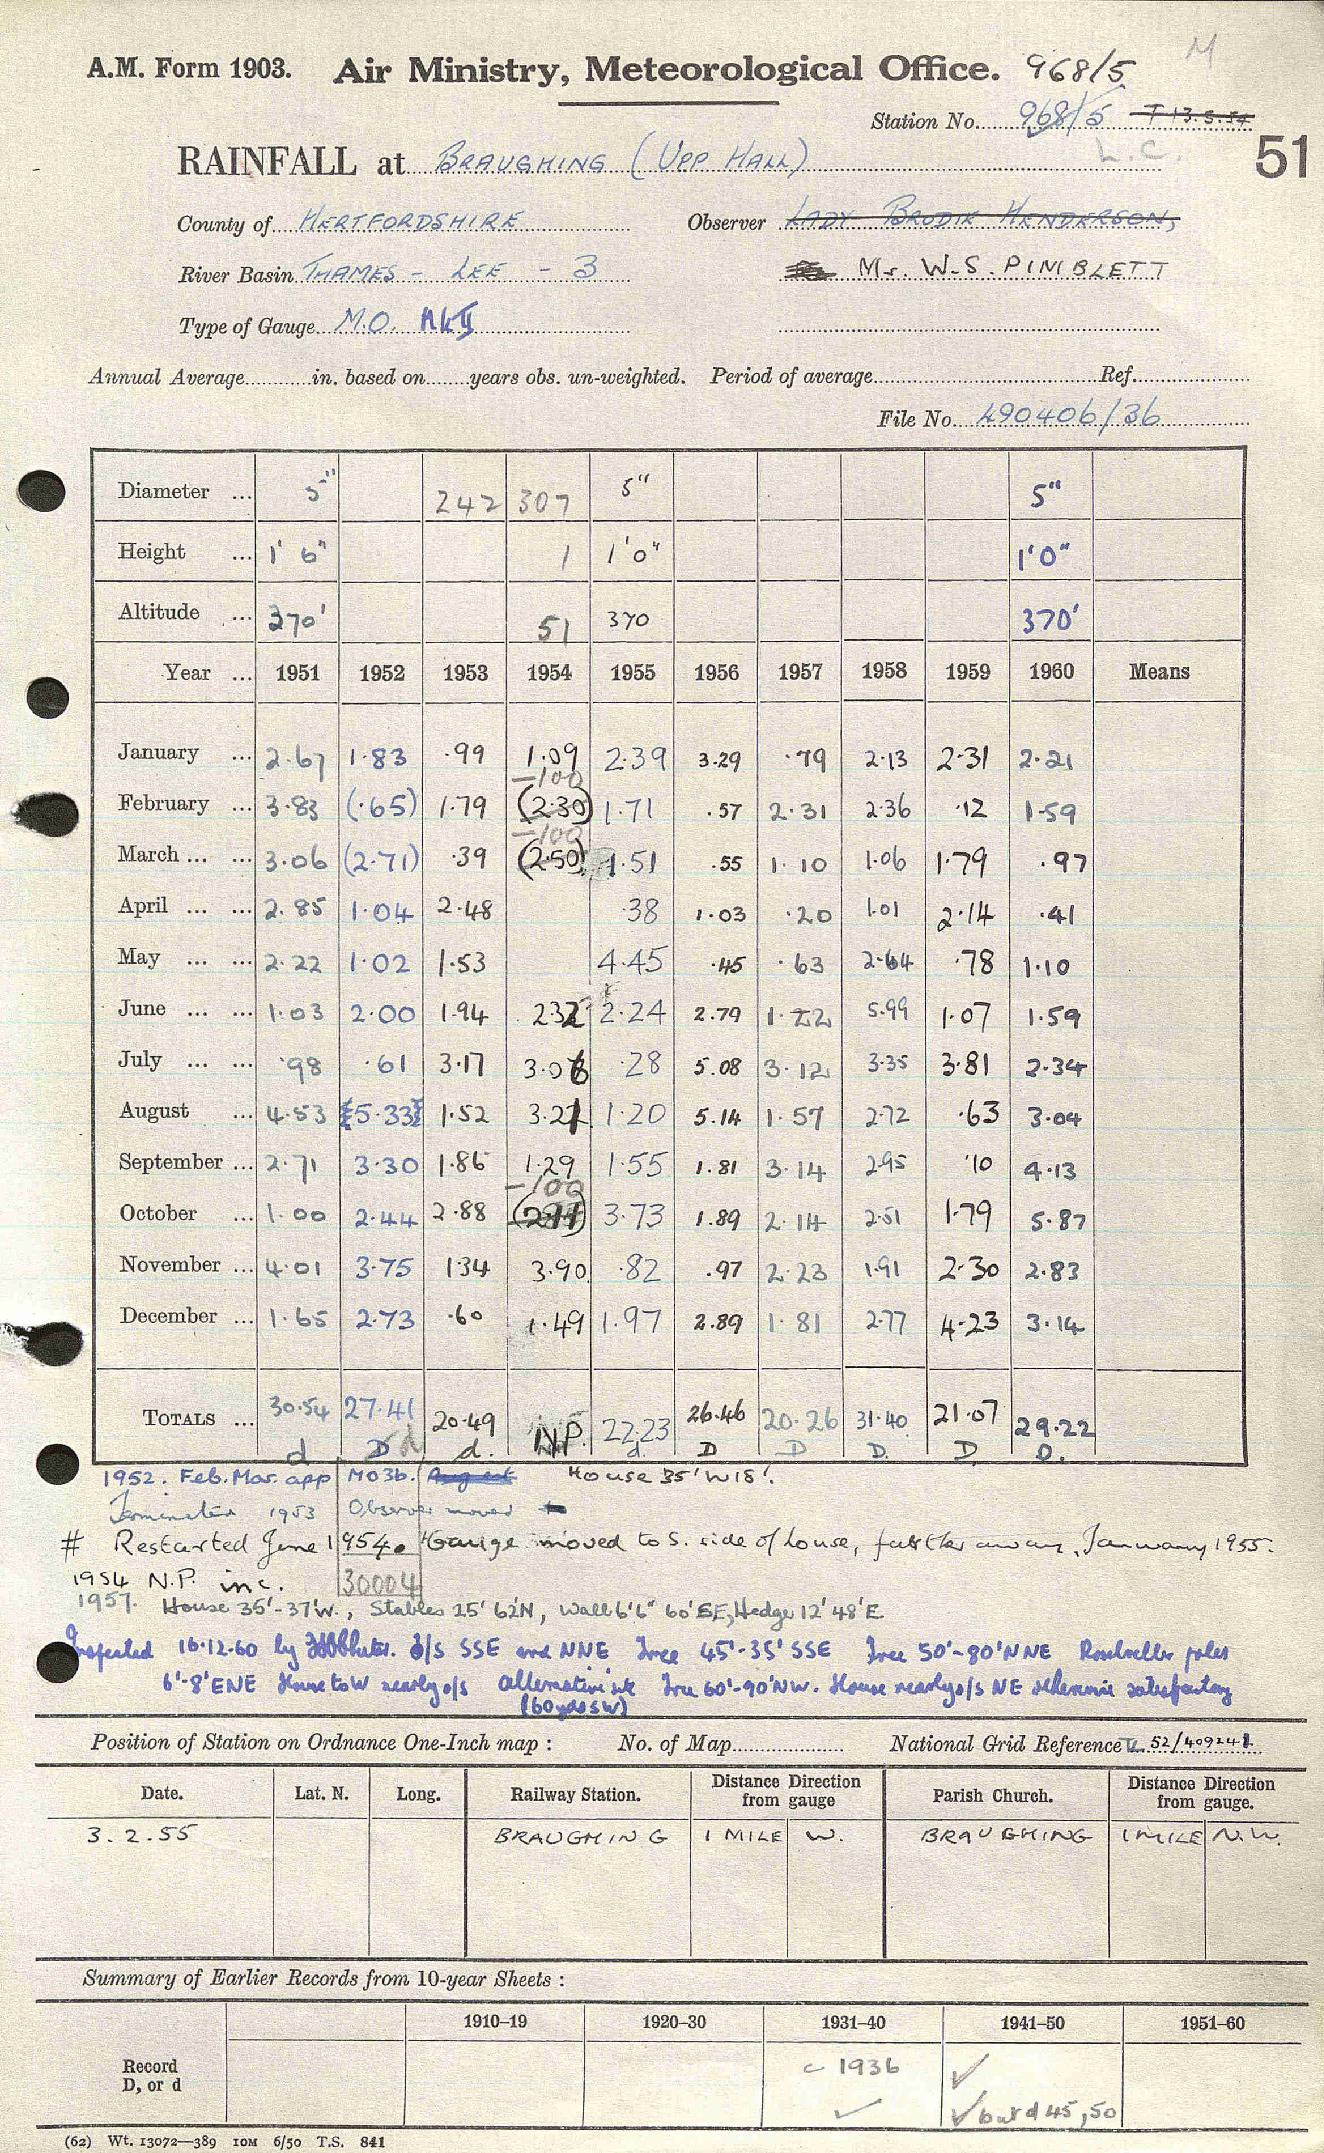 M
A.M. Form 1903. Air Ministry, Meteorological Office. 968/5
Station No. 968/5 T 13.5.54
L.C.
51
RAINFALL at BRAUGHING (UPP HALL)
County of HERTFORDSHIRE Observer LADY BRODIE HENDERSON,
River Basin THAMES - LEE - 3 Mr. W.S. PIMBLETT
Type of Gauge M.O. MkII
Annual Average in. based on years obs. un-weighted. Period of average Ref.
File No. 490406/36
Diameter ... 5" 242 307 5" 5"
Height ... 1' 6" 1 1'0" 1'0"
Altitude ... 370' 51 370 370'
Year ... 1951 1952 1953 1954 1955 1956 1957 1958 1959 1960 Means
January ... 2.67 1.83 .99 1.09 2.39 3.29 .79 2.13 2.31 2.21
-100
February ... 3.83 (.65) 1.79 (2.30) 1.71 .57 2.31 2.36 .12 1.59
-100
March ... ... 3.06 (2.71) .39 (2.50) 1.51 .55 1.10 1.06 1.79 .97
April ... ... 2.85 1.04 2.48 .38 1.03 .20 1.01 2.14 .41
May ... ... 2.22 1.02 1.53 4.45 .45 .63 2.64 .78 1.10
June ... ... 1.03 2.00 1.94 2.32 2.24 2.79 1.22 5.99 1.07 1.59
July ... ... .98 .61 3.17 3.06 .28 5.08 3.12 3.35 3.81 2.34
August ... 4.53 {5.33} 1.52 3.21 1.20 5.14 1.57 2.72 .63 3.04
September ... 2.71 3.30 1.86 1.29 1.55 1.81 3.14 2.95 .10 4.13
-100
October ... 1.00 2.44 2.88 (2.11) 3.73 1.89 2.14 2.51 1.79 5.87
November ... 4.01 3.75 1.34 3.90 .82 .97 2.23 1.91 2.30 2.83
December ... 1.65 2.73 .60 1.49 1.97 2.89 1.81 2.77 4.23 3.14
TOTALS ... 30.54 27.41 20.49 N.P. 22.23 26.46 20.26 31.40 21.07 29.22
d D d d. d. D D D. D. D.
1952. Feb. Mar. app MO3b. August House 35'W18'.
Terminated 1953 Observer moved
# Restarted June 1954. Gauge moved to S. side of house, further away, January 1955.
1954 N.P. inc. 30004
1957. House 35'-37'W., Stables 25' 62'N, Wall 6'6" 60'SE, Hedge 12' 48'E
Inspected 16.12.60 by o/s SSE and NNE Tree 45'-35' SSE Tree 50'-80'NNE poles
6'-8'ENE House to W nearly o/s Alternative site Tree 60'-90'NW. House nearly o/s NE otherwise satisfactory
(60yds SW)
Position of Station on Ordnance One-Inch map : No. of Map National Grid Reference 52/409241
Date. Lat. N. Long. Railway Station. Distance Direction from gauge Parish Church. Distance Direction from gauge.
3.2.55 BRAUGHING 1 MILE W. BRAUGHING 1 MILE N.W.
Summary of Earlier Records from 10-year Sheets :
1910–19 1920–30 1931–40 1941–50 1951–60
Record c 1936 ✓
D, or d ✓ ✓ but d 45, 50
(62) Wt. 13072—389 10M 6/50 T.S. 841